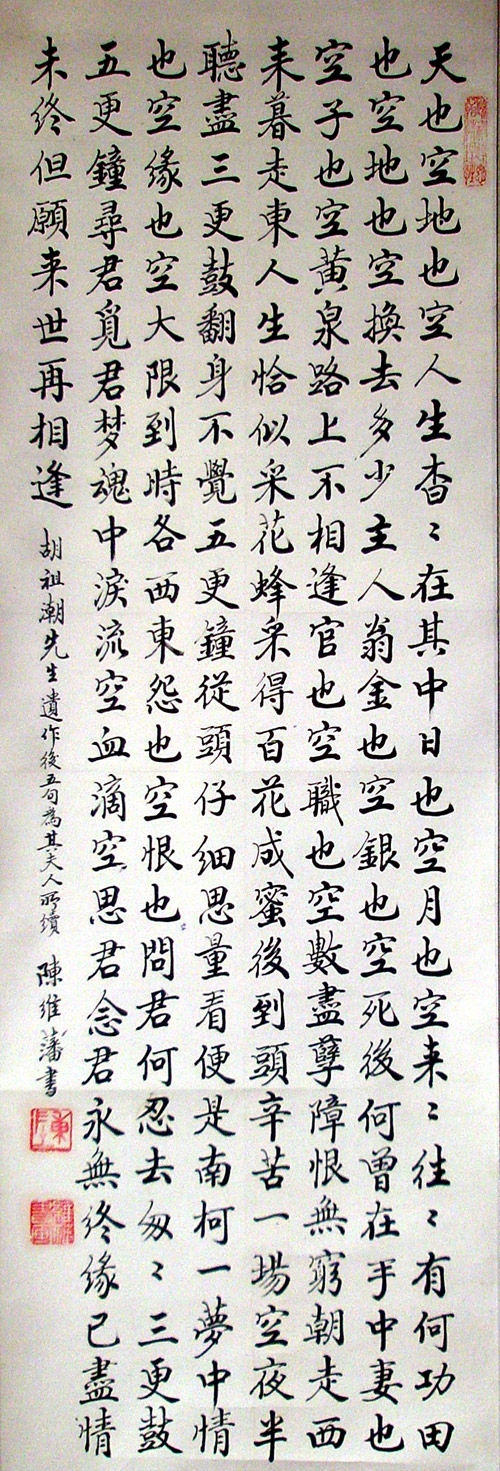 天也空地也空人生杳〻在其中日也空月也空来〻往〻有何功田
也空地也空換去多少主人翁金也空銀也空死後何曾在手中妻也
空子也空黃泉路上不相逢官也空職也空數盡孽障恨無窮朝走西
来暮走東人生恰似采花蜂采得百花成蜜後到頭辛苦一場空夜半
聽盡三更鼓翻身不覺五更鐘從頭仔細思量看便是南柯一夢中情
也空緣也空大限到時各西東怨也空恨也問君何忍去匆〻三更鼓
五更鐘尋君覓君梦魂中淚流空血滴空思君念君永無終緣已盡情
未終但願来世再相逢 胡祖潮先生遺作後五句為其夫人所續 陳維藩書